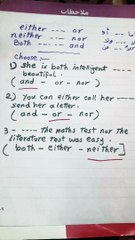 ملاحظات
either ---- or
neither --- nor
Both --- and
Choose:-
1) She is both intelligent ----
beautiful.
(and - or - nor)
2) you can either call her ----
send her a letter.
(and - or - nor)
3 - ----- the maths test nor the
literature test was easy.
(both - either - neither)